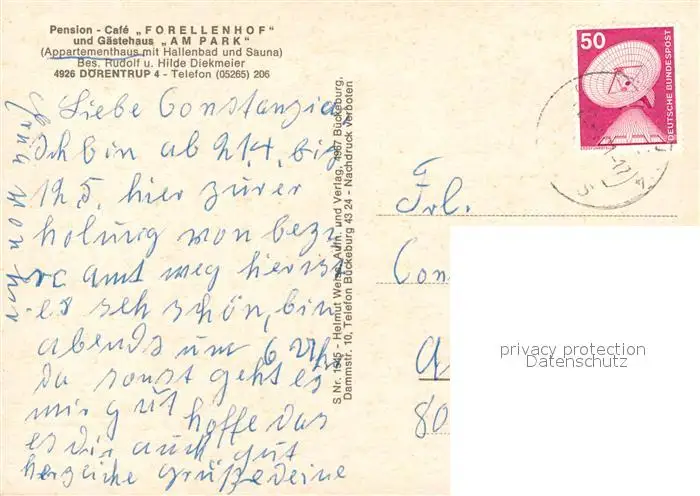 Pension - Café „FORELLENHOF"
und Gästehaus „AM PARK"
(Appartementhaus mit Hallenbad und Sauna)
Bes. Rudolf u. Hilde Diekmeier
4926 DÖRENTRUP 4 - Telefon (05265) 206
Liebe Constanzia
Ich bin ab 21.4. bis
12.5. hier zurer
holung von bezi
rc amt weg hier ist
es seh schön, bin
abends um 6 Uhr
da sonst geht es
mir gut hoffe das
es dir auch gut
herzliche grüße deine
S Nr. 1985 - Helmut Werge, Aufn. und Verlag, 4967 Bückeburg,
Dammstr. 10, Telefon Bückeburg 43 24 - Nachdruck verboten
50
DEUTSCHE BUNDESPOST
Frl.
Con
80
privacy protection
Datenschutz